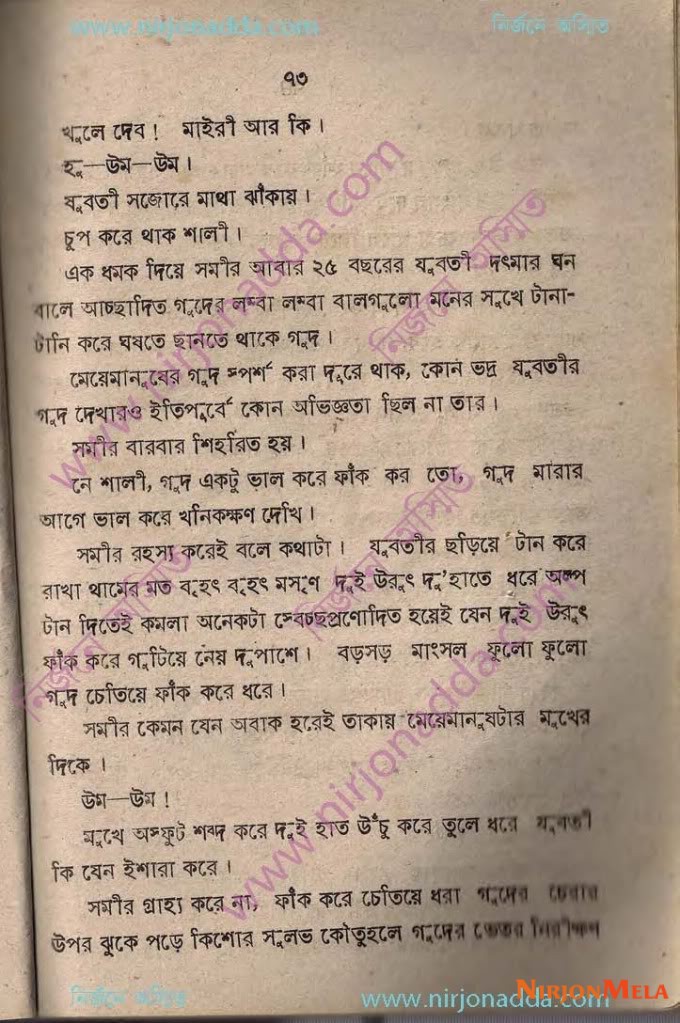 www.nirjonadda.com নির্জনে অস্মিত
৭৩
খুলে দেব! মাইরী আর কি।
হু—উম—উম।
যুবতী সজোরে মাথা ঝাঁকায়।
চুপ করে থাক শালী।
এক ধমক দিয়ে সমীর আবার ২৫ বছরের যুবতী দৎমার ঘন
বালে আচ্ছাদিত গুদের লম্বা লম্বা বালগুলো মনের সুখে টানা-
টানি করে ঘষতে ছানতে থাকে গুদ।
মেয়েমানুষের গুদ স্পর্শ করা দূরে থাক, কোন ভদ্র যুবতীর
গুদ দেখারও ইতিপূর্বে কোন অভিজ্ঞতা ছিল না তার।
সমীর বারবার শিহরিত হয়।
নে শালী, গুদ একটু ভাল করে ফাঁক কর তো, গুদ মারার
আগে ভাল করে খানিকক্ষণ দেখি।
সমীর রহস্য করেই বলে কথাটা। যুবতীর ছড়িয়ে টান করে
রাখা থামের মত বৃহৎ বৃহৎ মসৃণ দুই উরুৎ দু'হাতে ধরে অল্প
টান দিতেই কমলা অনেকটা স্বেচ্ছপ্রণোদিত হয়েই যেন দুই উরুৎ
ফাঁক করে গুটিয়ে নেয় দুপাশে। বড়সড় মাংসল ফুলো ফুলো
গুদ চেতিয়ে ফাঁক করে ধরে।
সমীর কেমন যেন অবাক হরেই তাকায় মেয়েমানুষটার মুখের
দিকে।
উম—উম!
মুখে অস্ফুট শব্দ করে দুই হাত উঁচু করে তুলে ধরে যুবতী
কি যেন ইশারা করে।
সমীর গ্রাহ্য করে না, ফাঁক করে চেতিয়ে ধরা গুদের চেরার
উপর ঝুকে পড়ে কিশোর সুলভ কৌতুহলে গুদের ভেতর নিরীক্ষণ
নির্জনে অস্মিত www.nirjonadda.com
NIRJONMELA
www.nirjonadda.com
নির্জনে অস্মিত
নির্জনে অস্মিত
নির্জনে অস্মিত
www.nirjonadda.com